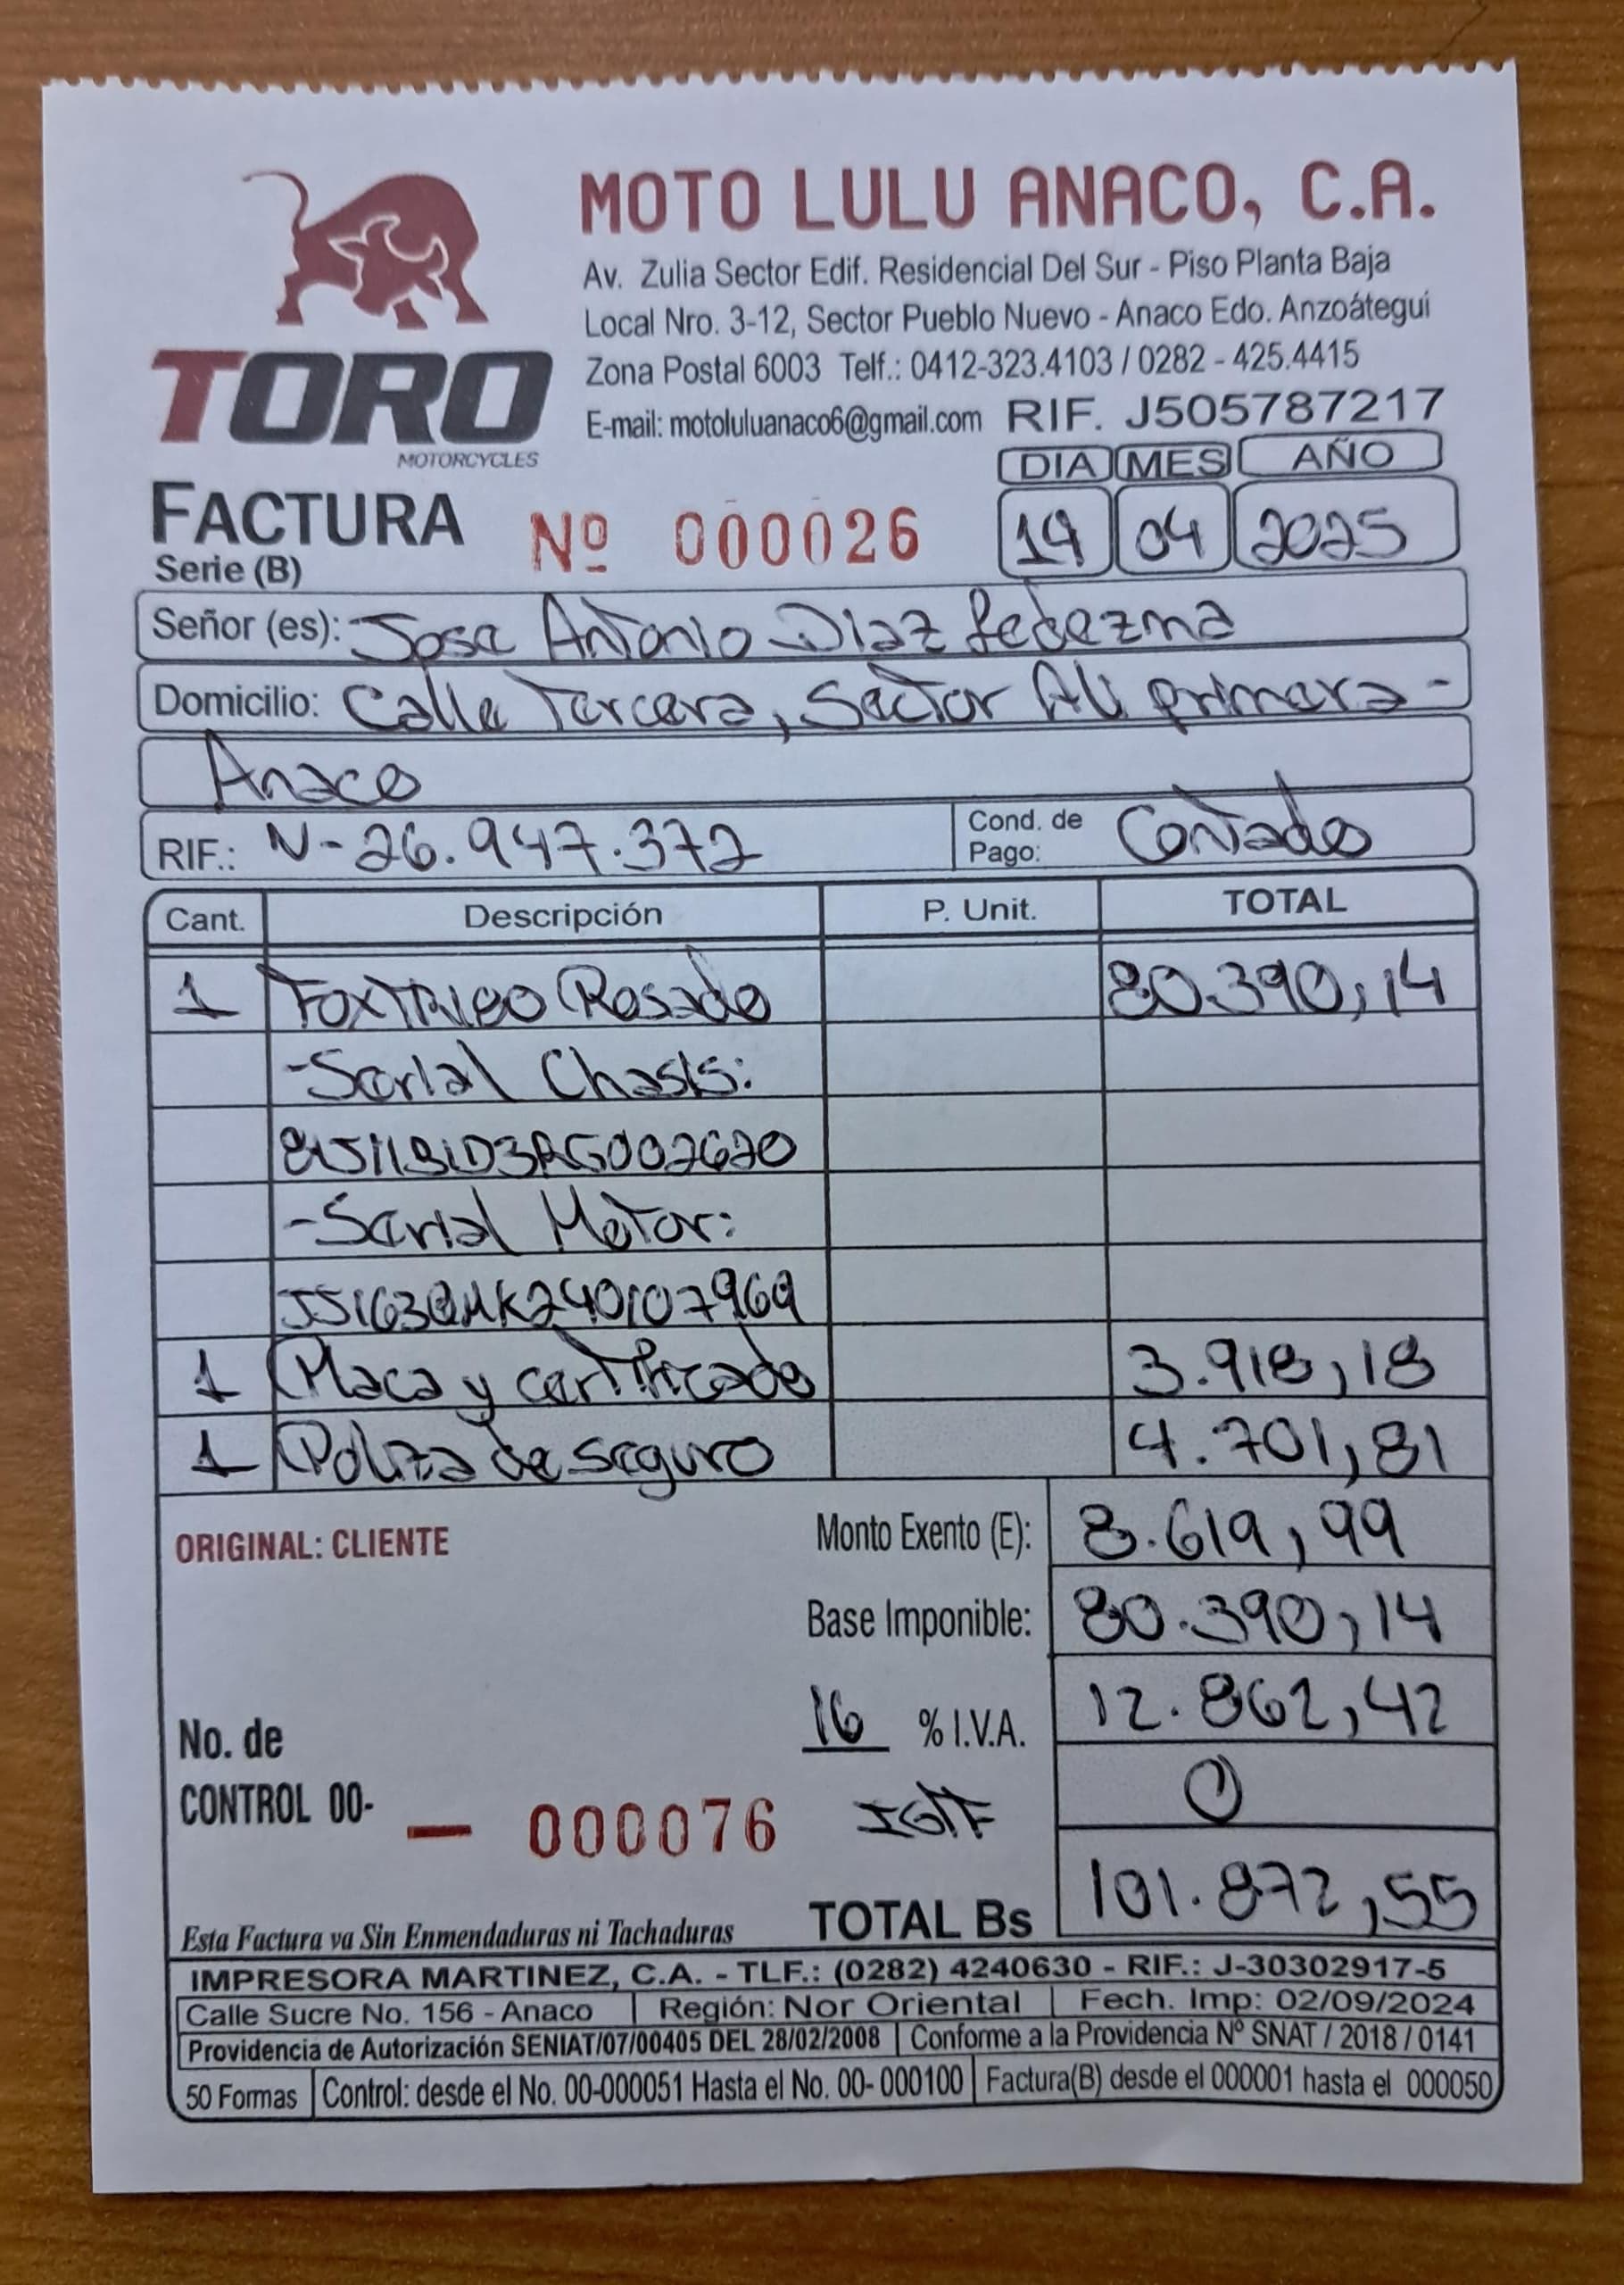 MOTO LULU ANACO, C.A.
Av. Zulia Sector Edif. Residencial Del Sur - Piso Planta Baja
Local Nro. 3-12, Sector Pueblo Nuevo - Anaco Edo. Anzoátegui
Zona Postal 6003 Telf.: 0412-323.4103 / 0282 - 425.4415
E-mail: motoluluanaco6@gmail.com RIF. J505787217
TORO
MOTORCYCLES
DIA MES AÑO
FACTURA Nº 000026 19 04 2025
Serie (B)
Señor (es): Jose Antonio Diaz Ledezma
Domicilio: Calle Tercera, Sector Ali primera -
Anaco
RIF.: V-26.947.372 Cond. de Pago: Contado
Cant. Descripción P. Unit. TOTAL
1 Rosado 80.390,14
- Serial Chasis:
- Serial Motor:
JS163QMK240107969
1 Placa y certificado 3.918,18
1 Poliza de seguro 4.701,81
ORIGINAL: CLIENTE Monto Exento (E): 8.619,99
Base Imponible: 80.390,14
16 % I.V.A. 12.862,42
No. de
CONTROL 00- — 000076 IGTF 0
Esta Factura va Sin Enmendaduras ni Tachaduras TOTAL Bs 101.872,55
IMPRESORA MARTINEZ, C.A. - TLF.: (0282) 4240630 - RIF.: J-30302917-5
Calle Sucre No. 156 - Anaco Región: Nor Oriental Fech. Imp: 02/09/2024
Providencia de Autorización SENIAT/07/00405 DEL 28/02/2008 Conforme a la Providencia Nº SNAT / 2018 / 0141
50 Formas Control: desde el No. 00-000051 Hasta el No. 00- 000100 Factura(B) desde el 000001 hasta el 000050